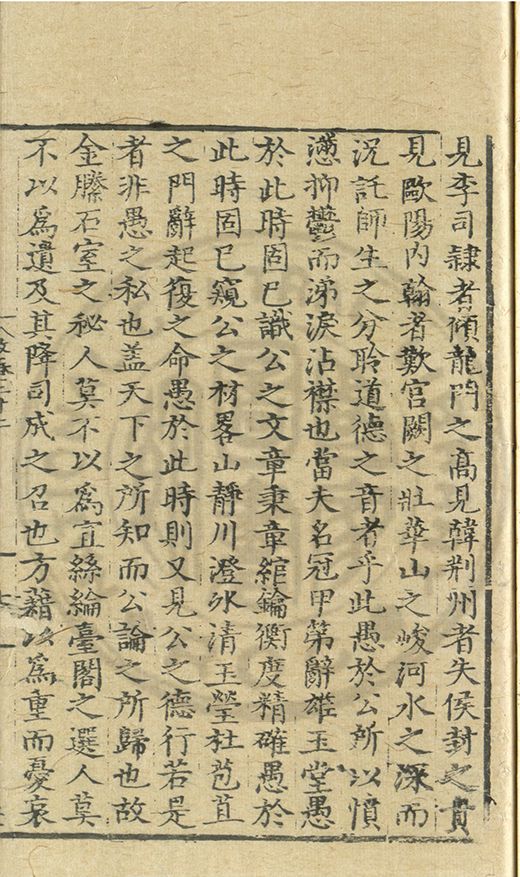 見李司隷者傾龍門之髙見韓荆州者失侯封之貴
見歐陽内翰者歎宫闕之壯華山之峻河水之深而
況託師生之分聆道德之音者乎此愚於公所以憤
懣抑鬱而涕淚沾襟也當夫名冠甲第辭雄玉堂愚
於此時固已識公之文章秉章綰鑰衡度精確愚於
此時固已窺公之材畧山靜川澄氷清玉瑩杜苞苴
之門辭起復之命愚於此時則又見公之德行若是
者非愚之私也盖天下之所知而公論之所歸也故
金縢石室之秘人莫不以爲宜絲綸臺閣之選人莫
不以爲遺及其降司成之召也方藉以爲重而憂哀